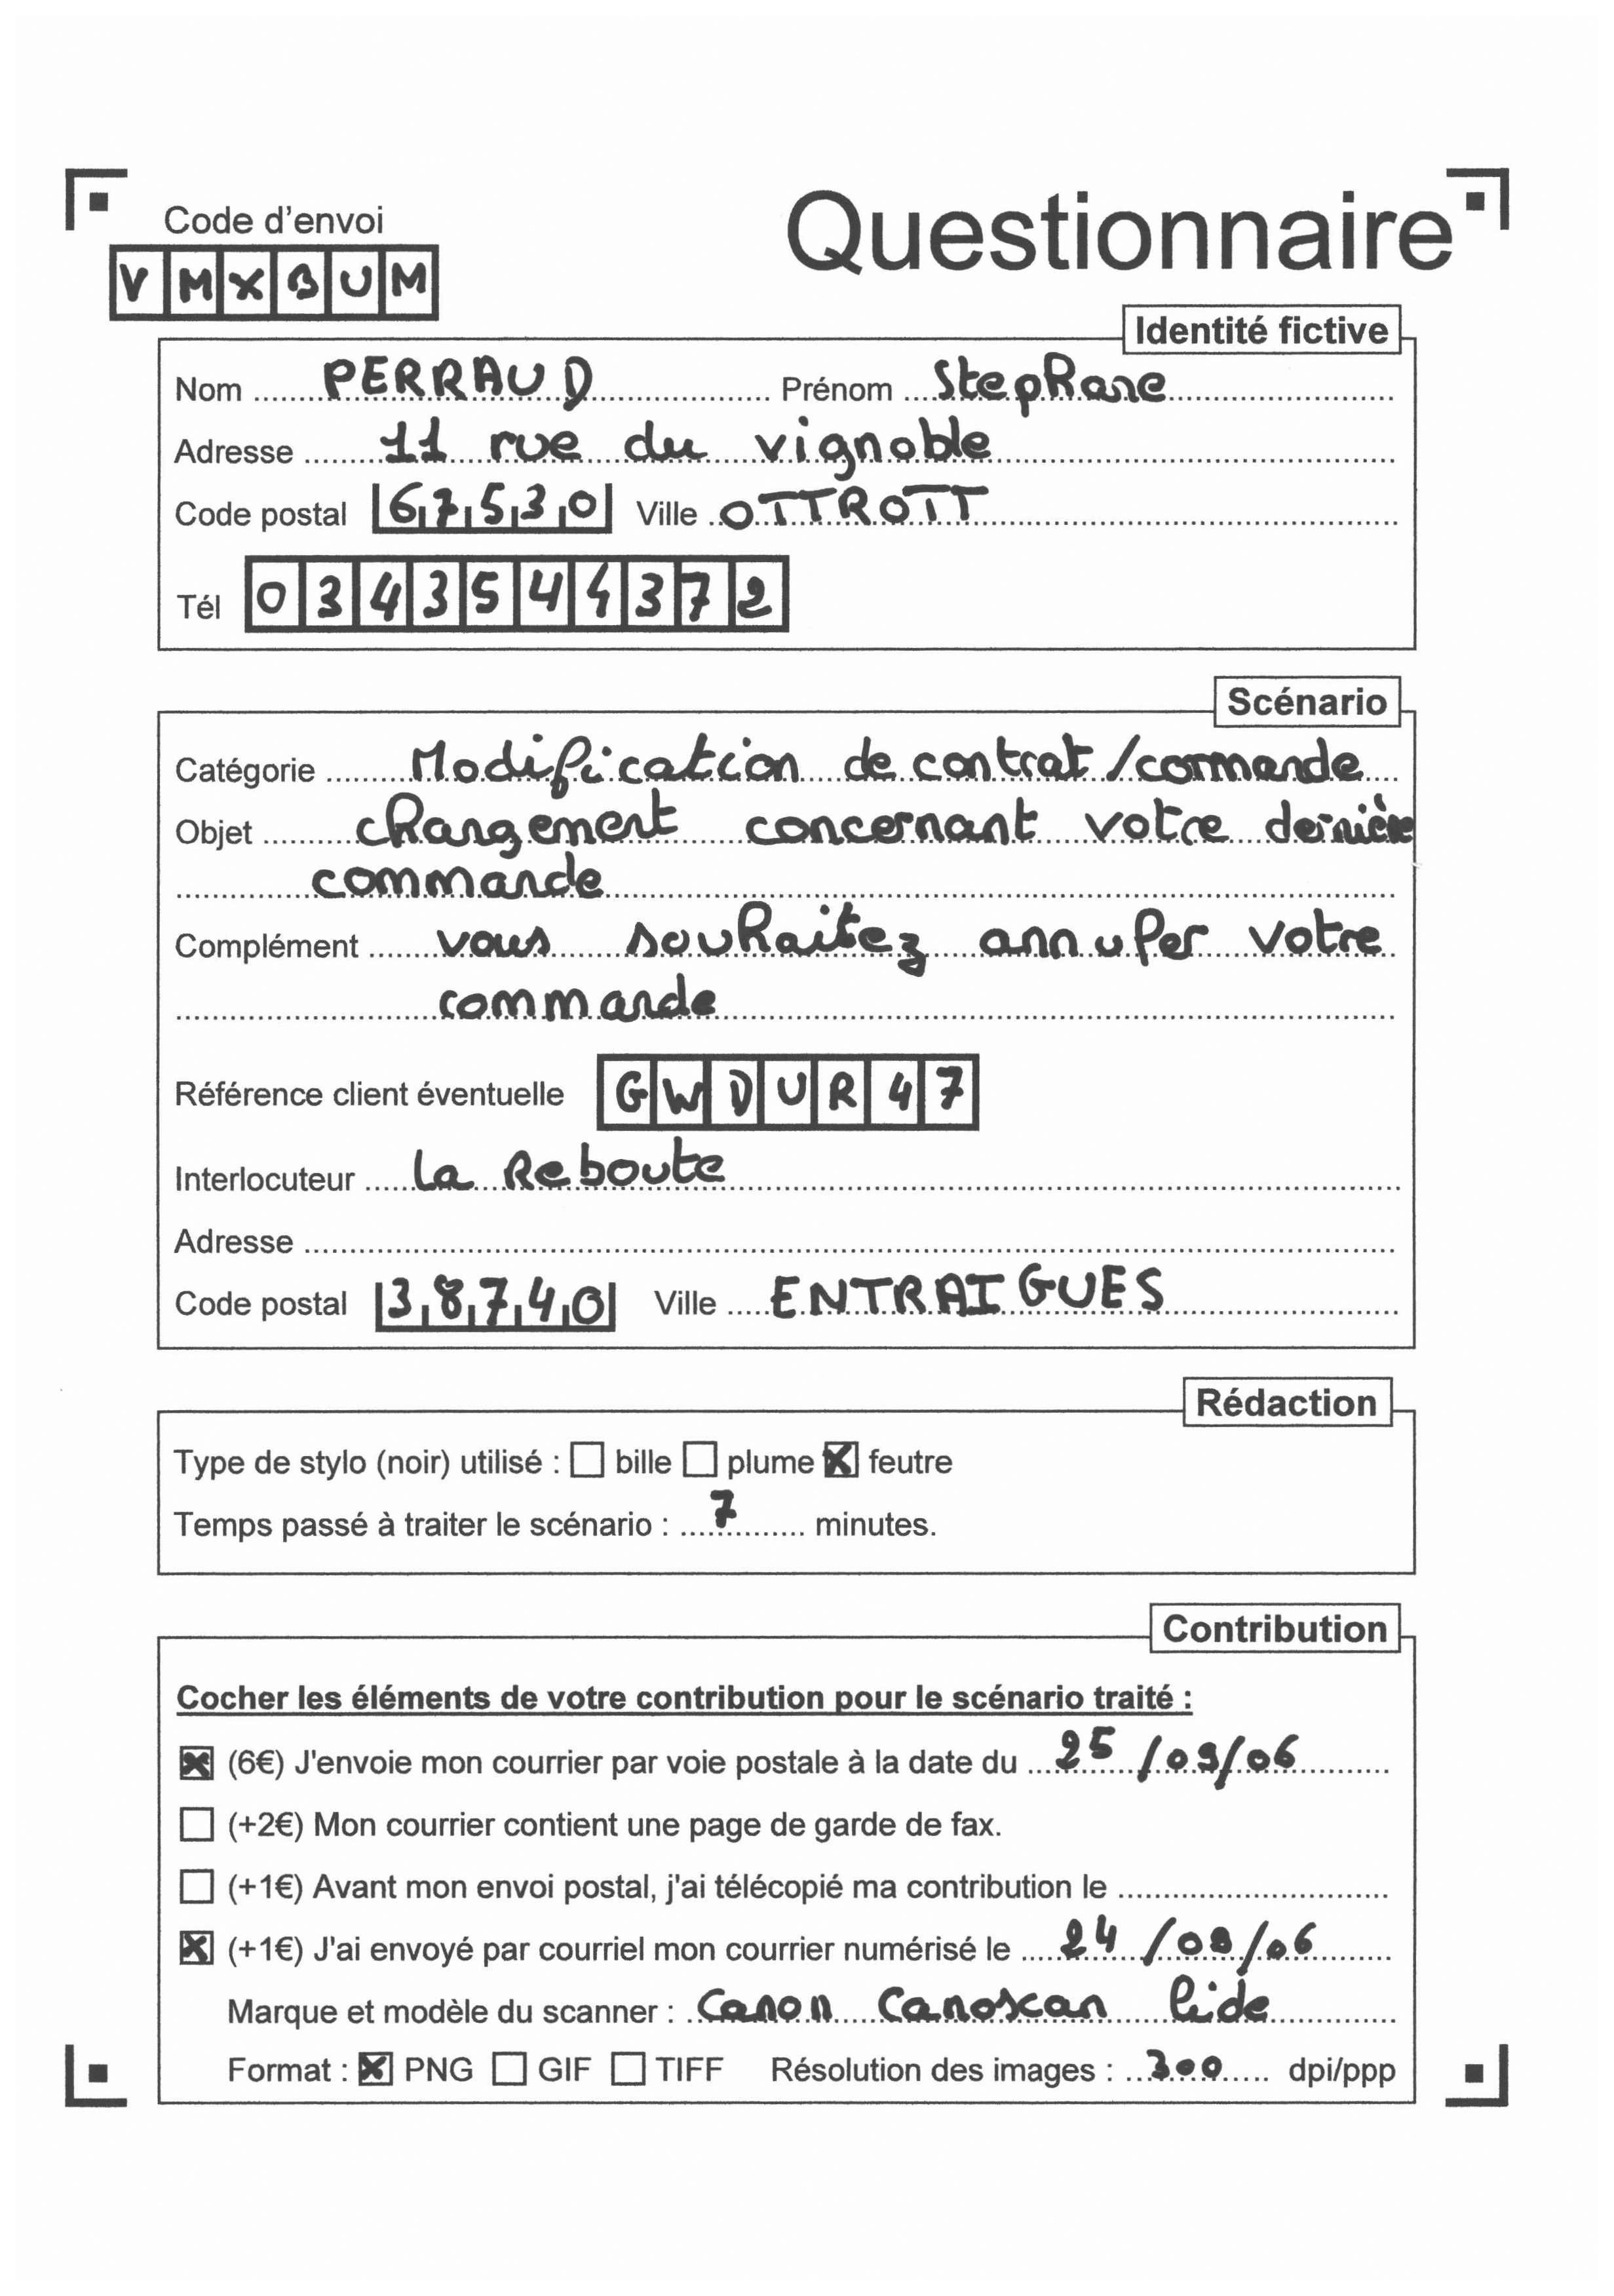 Code d'envoi
Questionnaire
VMXBUM
Identité fictive
Nom PERRAUD Prénom Stephane
Adresse 11 rue du vignoble
Code postal 67530 Ville OTTROTT
Tél 0343544372
Scénario
Catégorie Modification de contrat / commande
Objet changement concernant votre dernière
commande
Complément vous souhaitez annuler votre
commande
Référence client éventuelle GWDUR47
Interlocuteur la Reboute
Adresse
Code postal 38740 Ville ENTRAIGUES
Rédaction
Type de stylo (noir) utilisé : ☐ bille ☐ plume ☒ feutre
Temps passé à traiter le scénario : 7 minutes.
Contribution
Cocher les éléments de votre contribution pour le scénario traité :
☒ (6€) J'envoie mon courrier par voie postale à la date du 25/09/06
☐ (+2€) Mon courrier contient une page de garde de fax.
☐ (+1€) Avant mon envoi postal, j'ai télécopié ma contribution le
☒ (+1€) J'ai envoyé par courriel mon courrier numérisé le 24/09/06
Marque et modèle du scanner : Canon Canoscan lide
Format : ☒ PNG ☐ GIF ☐ TIFF Résolution des images : 300 dpi/ppp